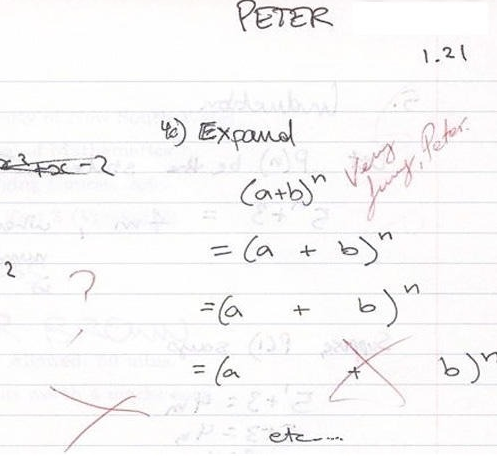 PETER
1.21
4c) Expand
(a+b)ⁿ
Very funny, Peter.
= (a + b)ⁿ
2
?
= (a + b)ⁿ
= (a + b)ⁿ
etc...